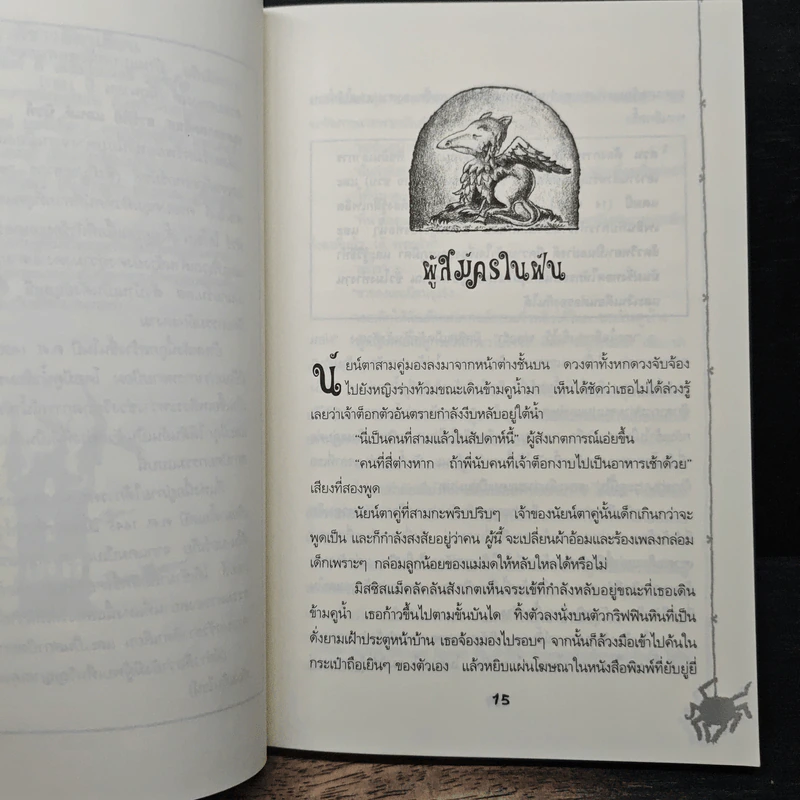 ผู้สมัครในฝัน
นัยน์ตาสามคู่มองลงมาจากหน้าต่างชั้นบน ดวงตาทั้งหกดวงจับจ้อง
ไปยังหญิงร่างท้วมขณะเดินข้ามคูน้ำมา เห็นได้ชัดว่าเธอไม่ได้ล่วงรู้
เลยว่าเจ้าต็อกตัวอันตรายกำลังงีบหลับอยู่ใต้น้ำ
“นี่เป็นคนที่สามแล้วในสัปดาห์นี้” ผู้สังเกตการณ์เอ่ยขึ้น
“คนที่สี่ต่างหาก ถ้าพี่นับคนที่เจ้าต็อกงาบไปเป็นอาหารเช้าด้วย”
เสียงที่สองพูด
นัยน์ตาคู่ที่สามกะพริบปริบๆ เจ้าของนัยน์ตาคู่นั้นเด็กเกินกว่าจะ
พูดเป็น และก็กำลังสงสัยอยู่ว่าคน ผู้นี้ จะเปลี่ยนผ้าอ้อมและร้องเพลงกล่อม
เด็กเพราะๆ กล่อมลูกน้อยของแม่มดให้หลับใหลได้หรือไม่
มิสซิสแม็คลัคลันสังเกตเห็นจระเข้ที่กำลังหลับอยู่ขณะที่เธอเดิน
ข้ามคูน้ำ เธอก้าวขึ้นไปตามขั้นบันได ทิ้งตัวลงนั่งบนตัวกริฟฟินหินที่เป็น
ดั่งยามเฝ้าประตูหน้าบ้าน เธอจ้องมองไปรอบๆ จากนั้นก็ล้วงมือเข้าไปค้นใน
กระเป๋าถือเยินๆ ของตัวเอง แล้วหยิบแผ่นโฆษณาในหนังสือพิมพ์ที่ยับยู่ยี่
15